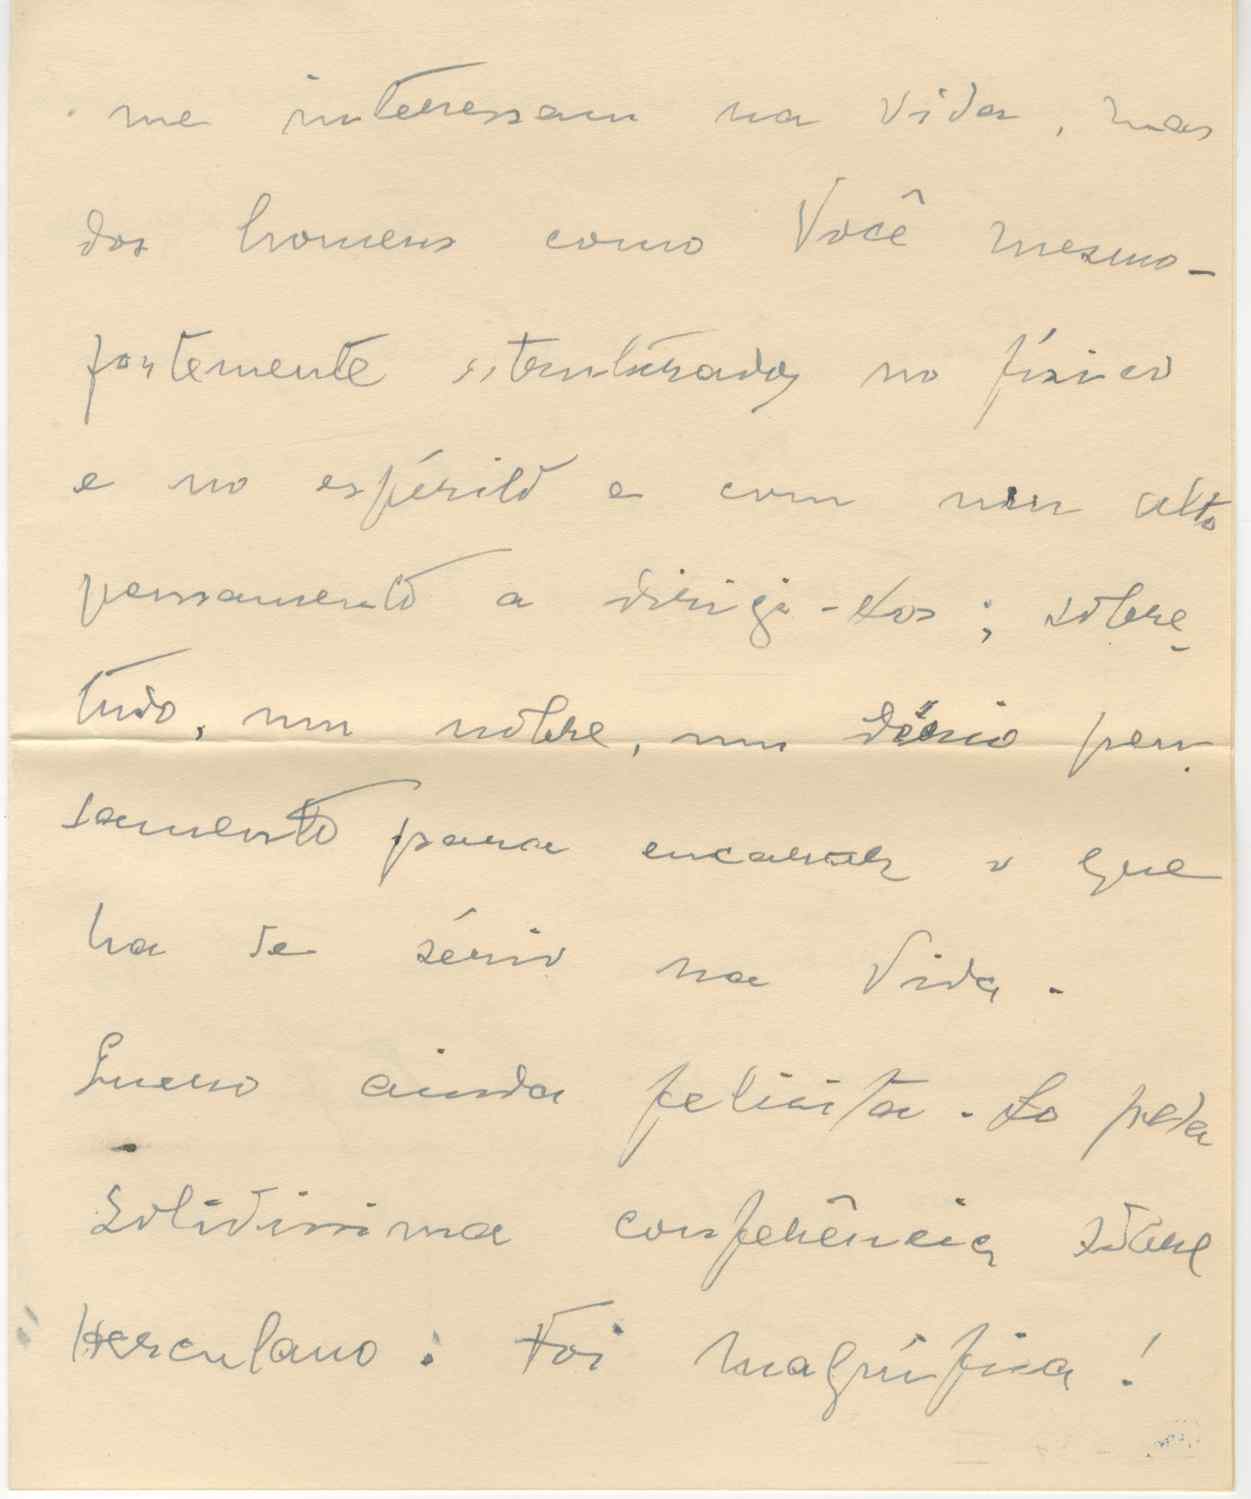 me interessam na vida, mas
dos homens como Você mesmo -
fortemente estruturados no físico
e no espírito e com um alto
pensamento a dirigi-los; sobre-
tudo, um nobre, um sério pen-
samento para encarar o que
ha de sério na Vida.
Quero ainda felicita-lo pela
solidissima conferência sôbre
Herculano: Foi magnífica!